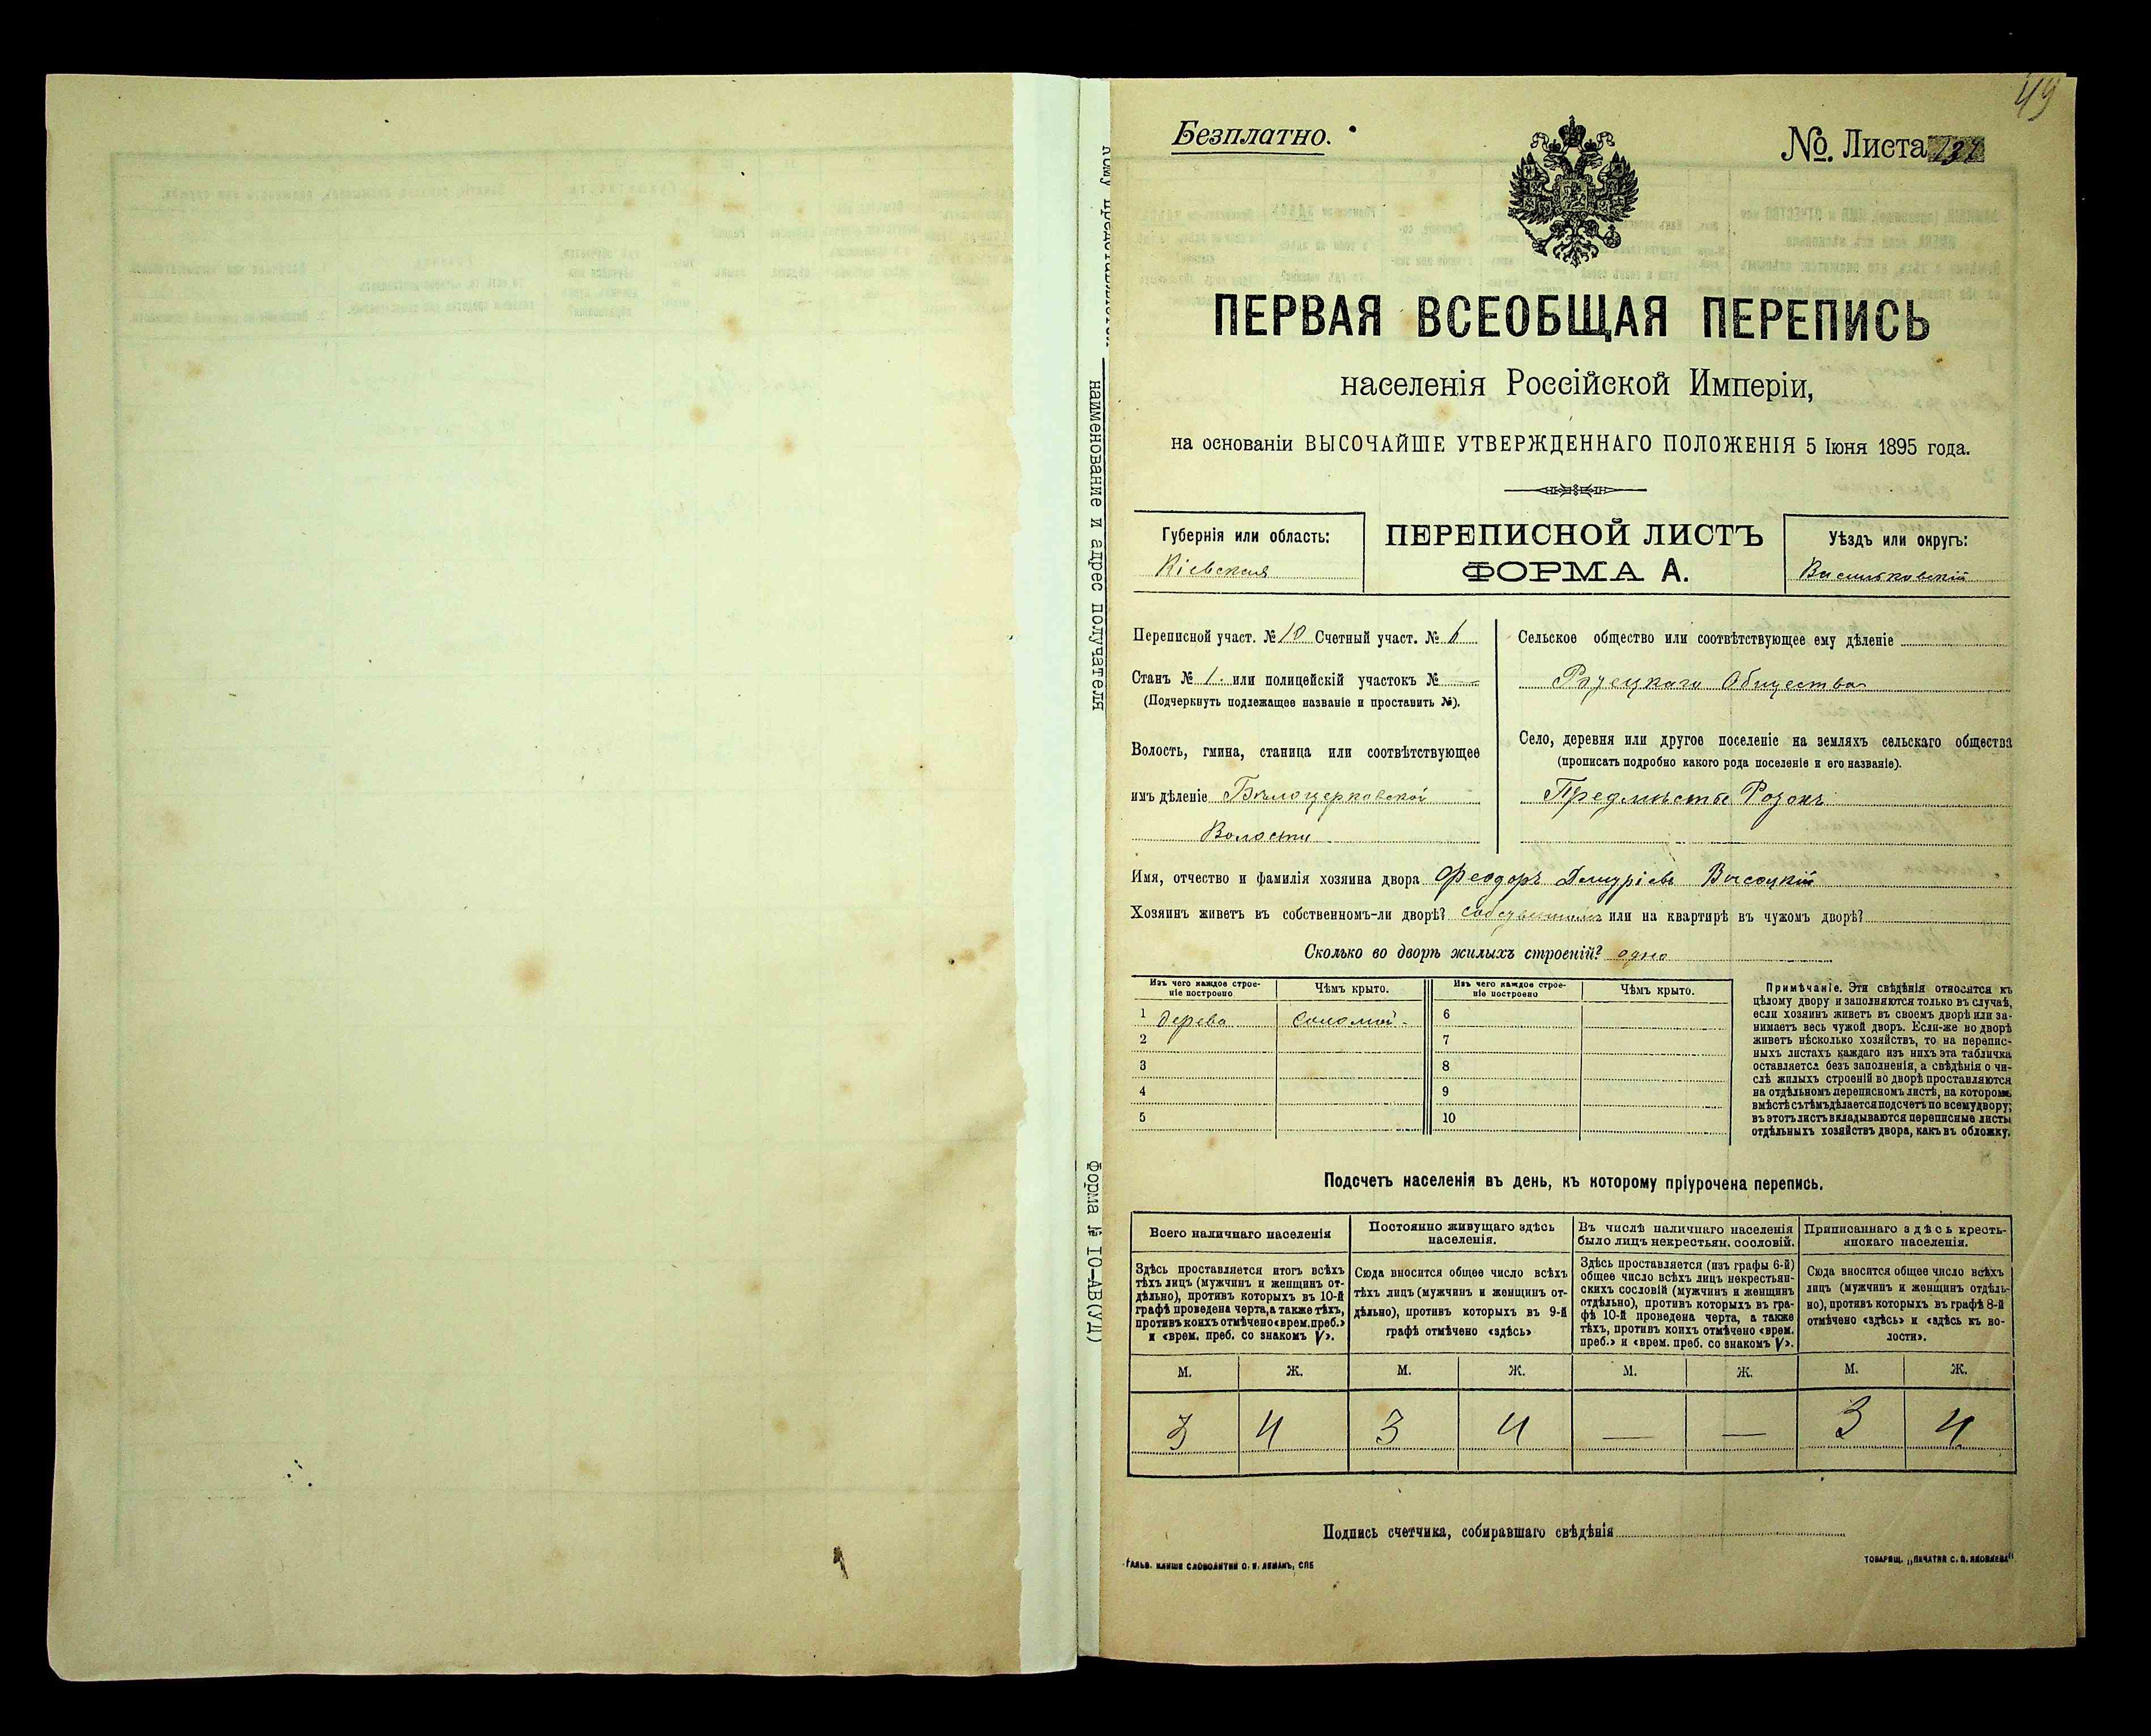 49
Безплатно.
№. Листа
ПЕРВАЯ ВСЕОБЩАЯ ПЕРЕПИСЬ
населенія Россійской Имперіи,
на основаніи ВЫСОЧАЙШЕ УТВЕРЖДЕННАГО ПОЛОЖЕНІЯ 5 Іюня 1895 года.
Губернія или область:
Кіевская
ПЕРЕПИСНОЙ ЛИСТЪ
ФОРМА А.
Уѣздъ или округъ:
Васильковскій
Переписной участ. № 10 Счетный участ. № 6
Станъ № 1. или полицейскій участокъ № —
(Подчеркнуть подлежащее названіе и проставить №).
Волость, гмина, станица или соотвѣтствующее
имъ дѣленіе Бѣлоцерковской
Волости
Сельское общество или соотвѣтствующее ему дѣленіе
Общества
Село, деревня или другое поселеніе на земляхъ сельскаго общества
(прописать подробно какого рода поселеніе и его названіе).
Предмѣстье
Имя, отчество и фамилія хозяина двора Феодоръ Высоцкій
Хозяинъ живетъ въ собственномъ-ли дворѣ? или на квартирѣ въ чужомъ дворѣ?
Сколько во дворѣ жилыхъ строеній? одно
Изъ чего каждое строе-
ніе построено
Чѣмъ крыто.
Изъ чего каждое строе-
ніе построено
Чѣмъ крыто.
1 дерева соломой. 6
2 7
3 8
4 9
5 10
Примѣчаніе. Эти свѣдѣнія относятся къ
цѣлому двору и заполняются только въ случаѣ,
если хозяинъ живетъ въ своемъ дворѣ или за-
нимаетъ весь чужой дворъ. Если-же во дворѣ
живетъ нѣсколько хозяйствъ, то на перепис-
ныхъ листахъ каждаго изъ нихъ эта табличка
оставляется безъ заполненія, а свѣдѣнія о чи-
слѣ жилыхъ строеній во дворѣ проставляются
на отдѣльномъ переписномъ листѣ, на которомъ
вмѣстѣ съ тѣмъ дѣлается подсчетъ по всему двору;
въ этотъ листъ вкладываются переписные листы
отдѣльныхъ хозяйствъ двора, какъ въ обложку.
Подсчетъ населенія въ день, къ которому пріурочена перепись.
Всего наличнаго населенія
Здѣсь проставляется итогъ всѣхъ
тѣхъ лицъ (мужчинъ и женщинъ от-
дѣльно), противъ которыхъ въ 10-й
графѣ проведена черта, а также тѣхъ,
противъ коихъ отмѣчено «врем. преб.»
и «врем. преб. со знакомъ V».
Постоянно живущаго здѣсь
населенія.
Сюда вносится общее число всѣхъ
тѣхъ лицъ (мужчинъ и женщинъ от-
дѣльно), противъ которыхъ въ 9-й
графѣ отмѣчено «здѣсь»
Въ числѣ наличнаго населенія
было лицъ некрестьян. сословій.
Здѣсь проставляется (изъ графы 6-й)
общее число всѣхъ лицъ некрестьян-
скихъ сословій (мужчинъ и женщинъ
отдѣльно), противъ которыхъ въ гра-
фѣ 10-й проведена черта, а также
тѣхъ, противъ коихъ отмѣчено «врем.
преб.» и «врем. преб. со знакомъ V».
Приписаннаго здѣсь кресть-
янскаго населенія.
Сюда вносится общее число всѣхъ
лицъ (мужчинъ и женщинъ отдѣль-
но), противъ которыхъ въ графѣ 8-й
отмѣчено «здѣсь» и «здѣсь къ во-
лости».
М. Ж. М. Ж. М. Ж. М. Ж.
3 4 3 4 — — 3 4
Подпись счетчика, собиравшаго свѣдѣнія
ГАЛЬВ. КЛИШЕ СЛОВОЛИТНИ О. И. ЛЕМАНЪ, СПБ
ТОВАРИЩ. „ПЕЧАТНЯ С. П. ЯКОВЛЕВА“
Кому представляется
наименование и адрес получателя
Форма № 10-АВ(УД)